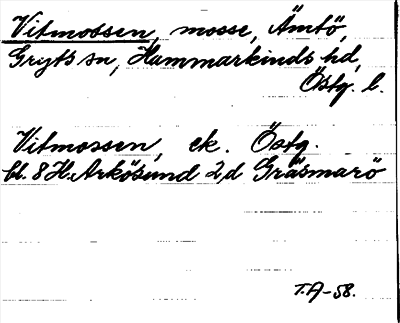 Vitmossen, mosse, Ämtö,
Gryts sn, Hammarkinds hd,
Östg. l.
Vitmossen, ek. Östg.
bl. 8 H, Arkösund 2,d Gräsmarö
T.A-58.